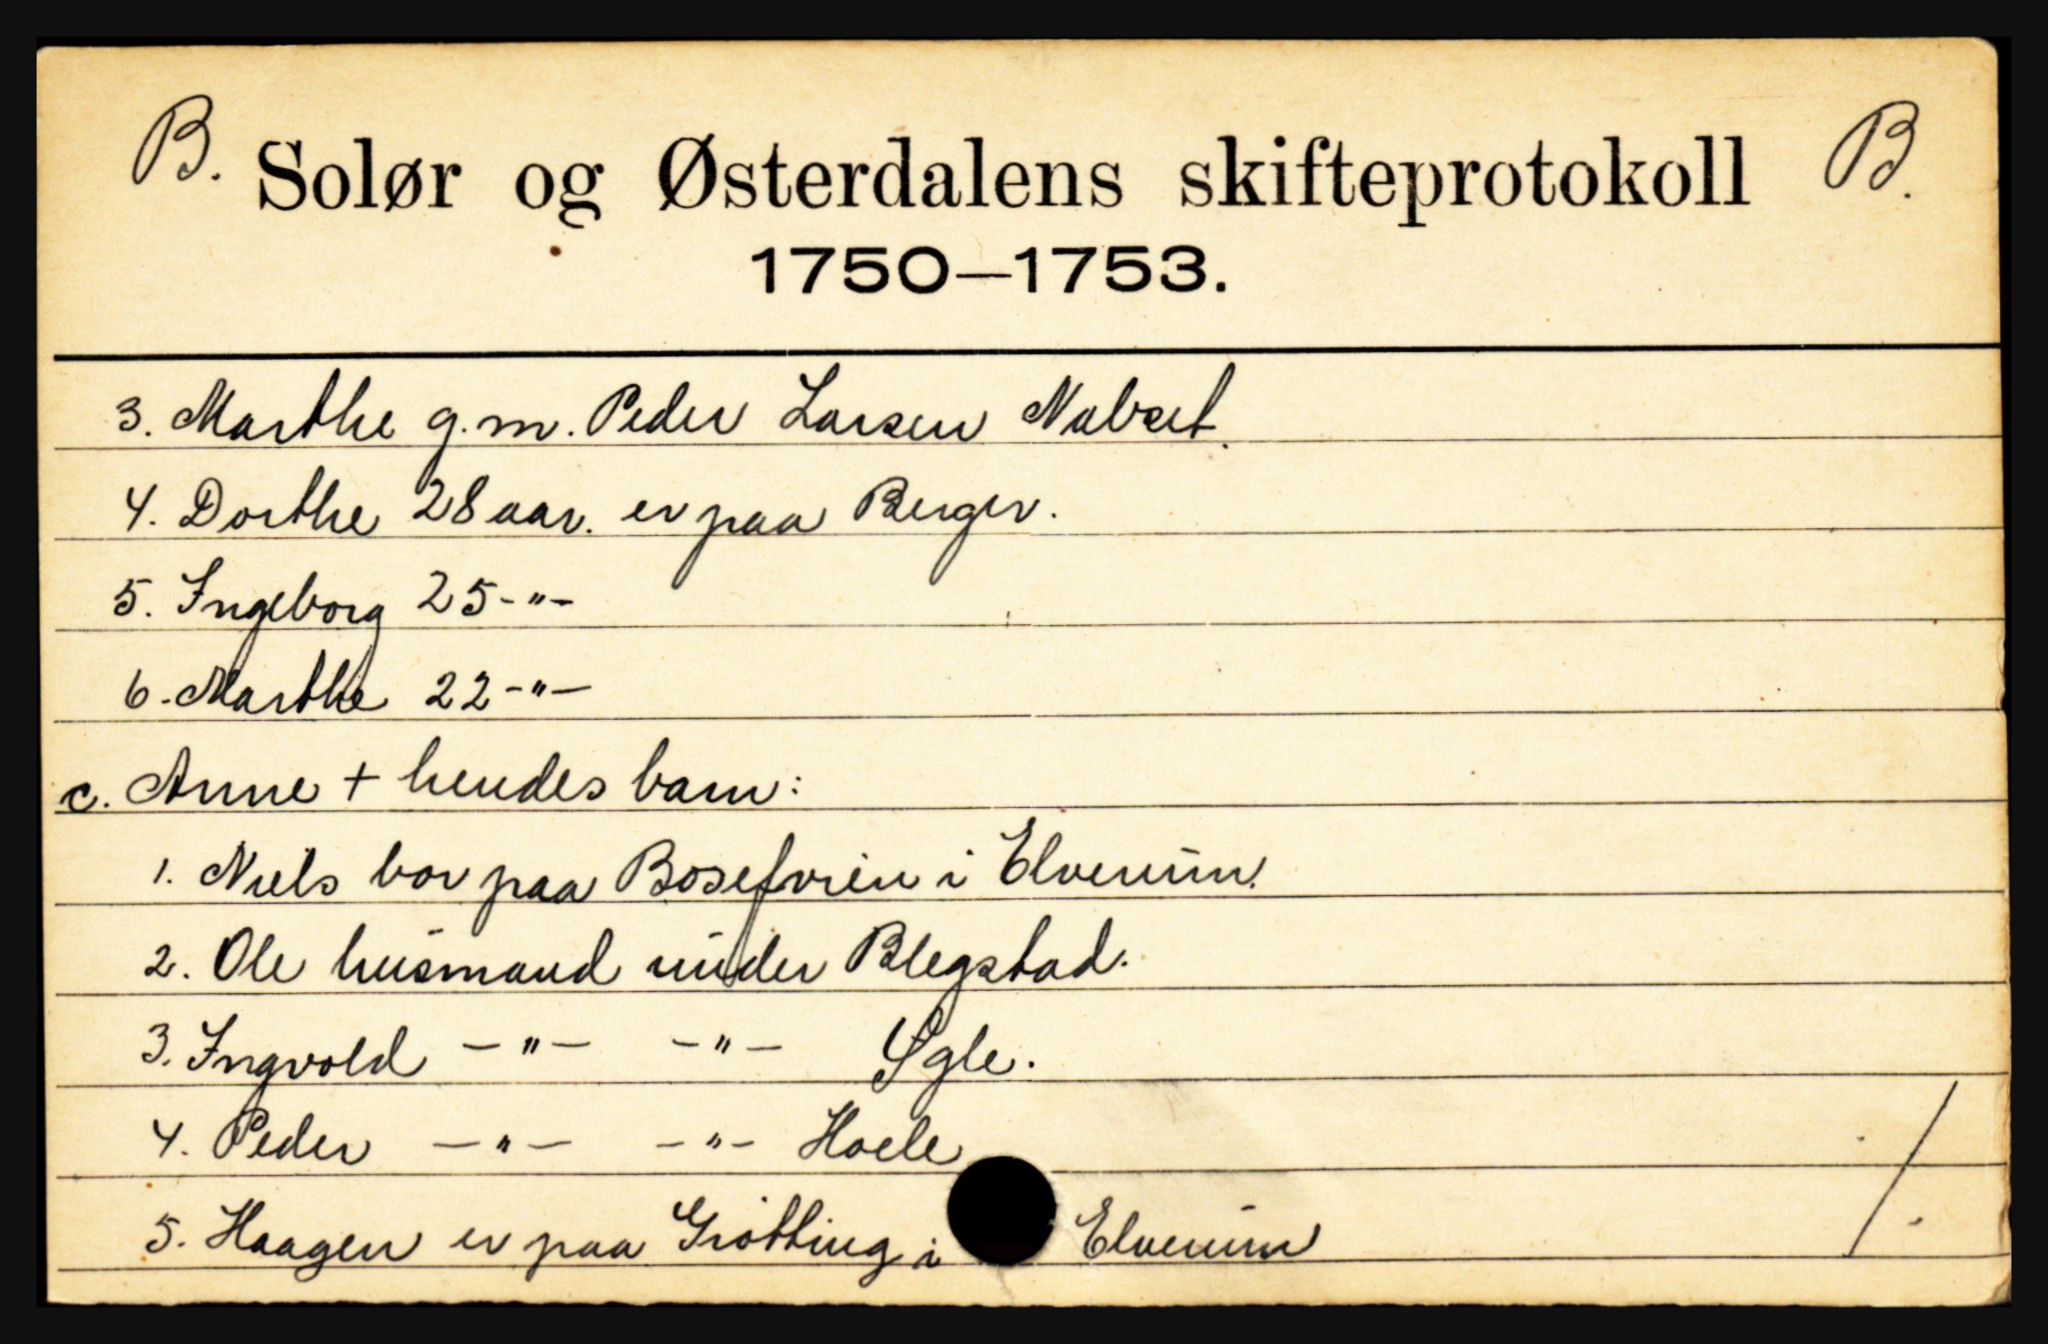 B. Solør og Østerdalens skifteprotokoll B.
1750—1753.
3. Marthe g.m. Peder Larsen Nabset.
4. Dorthe 28 aar. er paa Berger.
5. Ingeborg 25 -"-
6. Marthe 22 -"-
c. Anne + hendes barn:
1. Niels bor paa i Elverum.
2. Ole husmand under Blegstad.
3. Ingvold -"- -"- Sgle.
4. Peder -"- -"- Hoele
5. Haagen er paa Grøtting i Elverum
/.